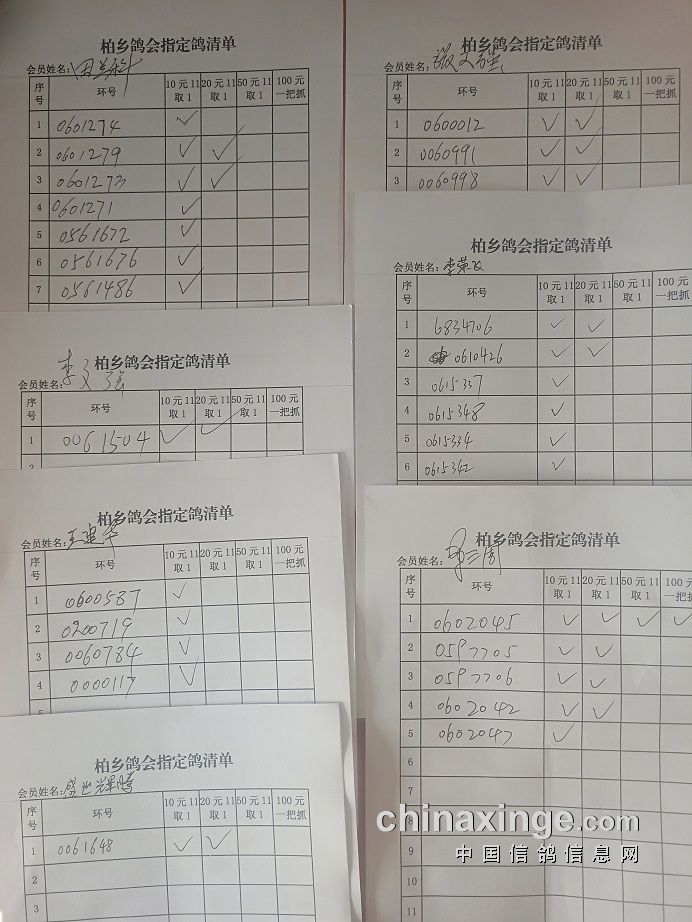 柏乡鸽会指定鸽清单
会员姓名：田兰科
序号 环号 10元11取1 20元11取1 50元11取1 100元一把抓
1 0601274 ✓
2 0601279 ✓ ✓
3 0601273 ✓ ✓
4 0601271 ✓
5 0561672 ✓
6 0561676 ✓
7 0561486 ✓
柏乡鸽会指定鸽清单
会员姓名：张文群
序号 环号 10元11取1 20元11取1 50元11取1 100元一把抓
1 0600012 ✓ ✓
2 0060991 ✓ ✓
3 0060998 ✓ ✓
柏乡鸽会指定鸽清单
会员姓名：李荣飞
序号 环号 10元11取1 20元11取1 50元11取1 100元一把抓
1 6834706 ✓ ✓
2 0610426 ✓ ✓
3 0615337 ✓
4 0615348 ✓
5 0615334 ✓
6 0615342 ✓
柏乡鸽会指定鸽清单
会员姓名：李文强
序号 环号 10元11取1 20元11取1 50元11取1 100元一把抓
1 0061504 ✓ ✓
2
柏乡鸽会指定鸽清单
会员姓名：王进华
序号 环号 10元11取1 20元11取1 50元11取1 100元一把抓
1 0600587 ✓
2 0200719 ✓
3 0060784 ✓
4 0000117 ✓
5
柏乡鸽会指定鸽清单
会员姓名：三周
序号 环号 10元11取1 20元11取1 50元11取1 100元一把抓
1 0602045 ✓ ✓ ✓ ✓
2 0597705 ✓ ✓
3 0597706 ✓ ✓
4 0602042 ✓ ✓
5 0602047 ✓
6
7
8
9
10
11
柏乡鸽会指定鸽清单
会员姓名：盛世辉腾
序号 环号 10元11取1 20元11取1 50元11取1 100元一把抓
1 0061648 ✓ ✓
2
3
chinaxinge.com
中国信鸽信息网